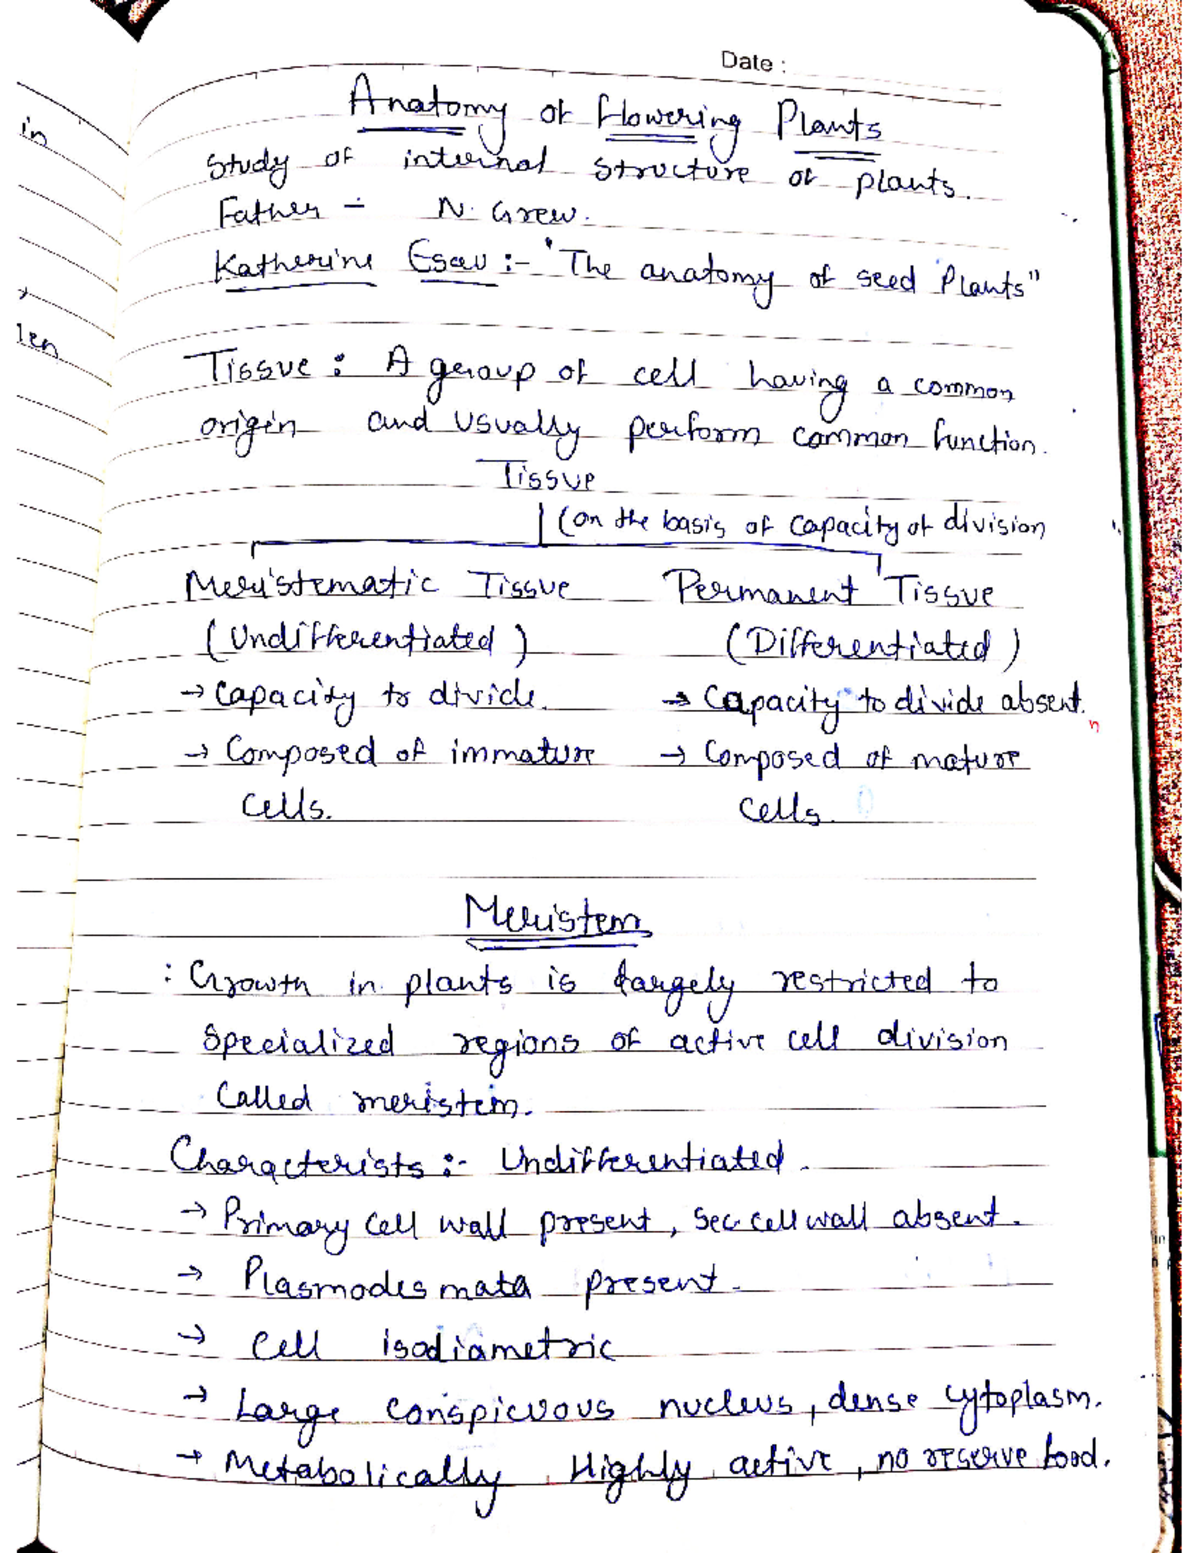 Date :
Anatomy of flowering Plants
Study of internal structure of plants.
Father - N. Grew.
Katherine Esau :- "The anatomy of seed Plants"
Tissue : A group of cell having a common
origin and usually perform common function.
Tissue
(on the basis of capacity of division
Meristematic Tissue Permanent Tissue
(Undifferentiated) (Differentiated)
→ Capacity to divide. → Capacity to divide absent.
→ Composed of immature → Composed of mature
cells. cells.
Meristem
: Growth in plants is largely restricted to
specialized regions of active cell division
called meristem.
Characterists :- Undifferentiated.
→ Primary cell wall present, sec. cell wall absent.
→ Plasmodesmata present.
→ Cell isodiametric
→ Large conspicuous nucleus, dense cytoplasm.
→ Metabolically Highly active, no reserve food.
in
len